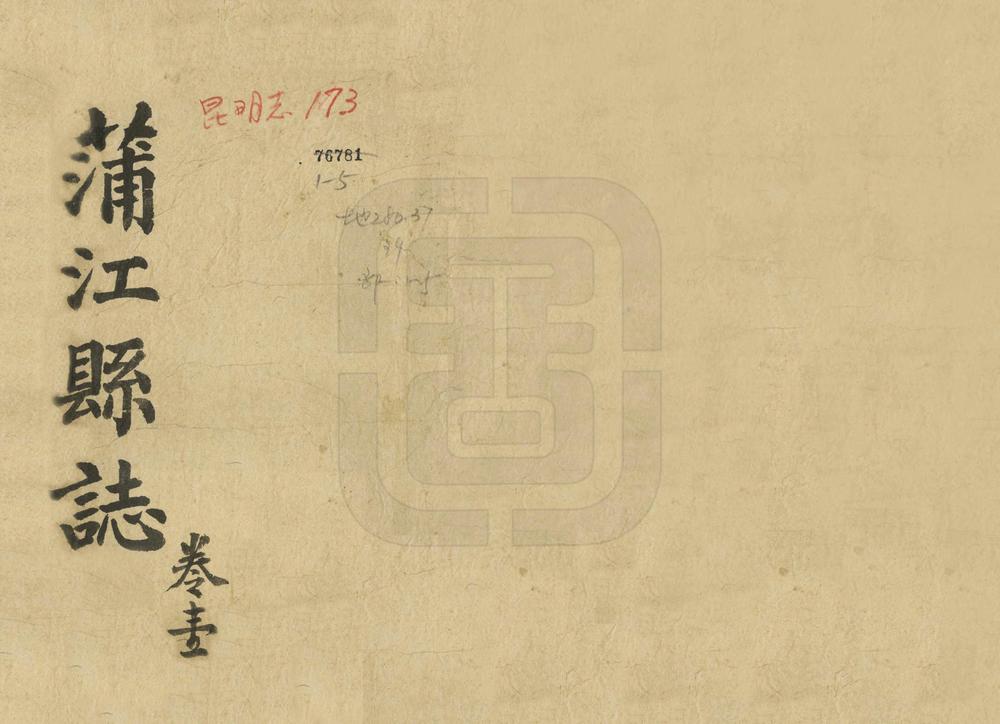 蒲江縣誌
卷壹
昆明志 173
76781
1-5
地280.37